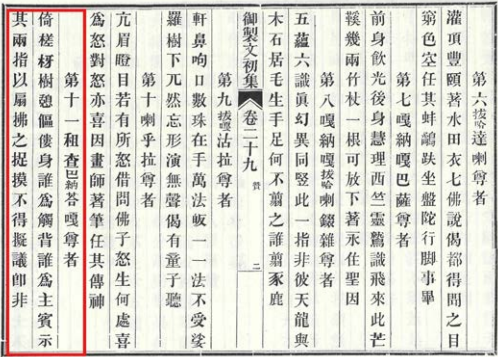 第六拔哈達尊者
灌頂豐頤著水田衣七佛說偈都得問之目
窮色空任其蚌鷸趺坐盤陀行脚事畢
第七嘎納嘎巴薩尊者
前身飲光後身慧理西竺靈鷲識飛來此芒
鞵幾兩竹杖一根可放下著永住聖因
第八嘎納嘎拔哈喇錣雜尊者
五蘊六識眞幻異同豎此一指非彼天龍與
木石居毛生手足何不翦之誰翦豕鹿
御製文初集 卷二十九 贊 二
第九拔嘎沽拉尊者
軒鼻呴口數珠在手萬法皈一一法不受娑
羅樹下兀然忘形演無聲偈有童子聽
第十喇乎拉尊者
亢眉瞪目若有所怒借問佛子怒生何處喜
為怒對怒亦喜因畫師著筆任其傳神
第十一租查巴納荅嘎尊者
倚槎枒樹憩傴僂身誰為觸背誰為主賓示
其兩指以扇拂之捉摸不得擬議即非